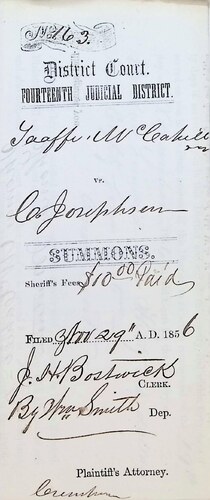 No 163.
District Court.
FOURTEENTH JUDICIAL DISTRICT.
Taaffe & McCahill
vs.
C. Josephson
SUMMONS.
Sheriff's Fees $10 00 Paid
FILED Nov 29" A.D. 1856
J. H. Bostwick
CLERK.
By Wm Smith Dep.
Plaintiff's Attorney.